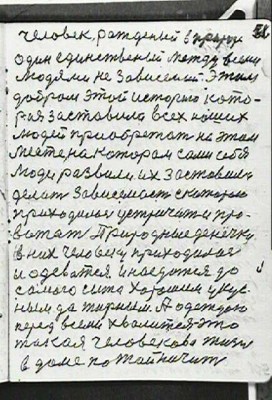 человек, рожденый в природе
один единственый между всеми
людями не зависемый. Этим
добром этой историй кото-
рая заставила всех наших
людей приобретать на этом
месте, на котором сами себя
люди развили. их заставили
делать зависемость с которою
приходилося устричать и про-
вожать Природные денечки
в них человеку приходилося
и одеватся и наедатся до
самого сыта хорошим и укус-
ным да жирным. А одеждою
перед всеми хвалится это
такая человекова жизнь
в доме по